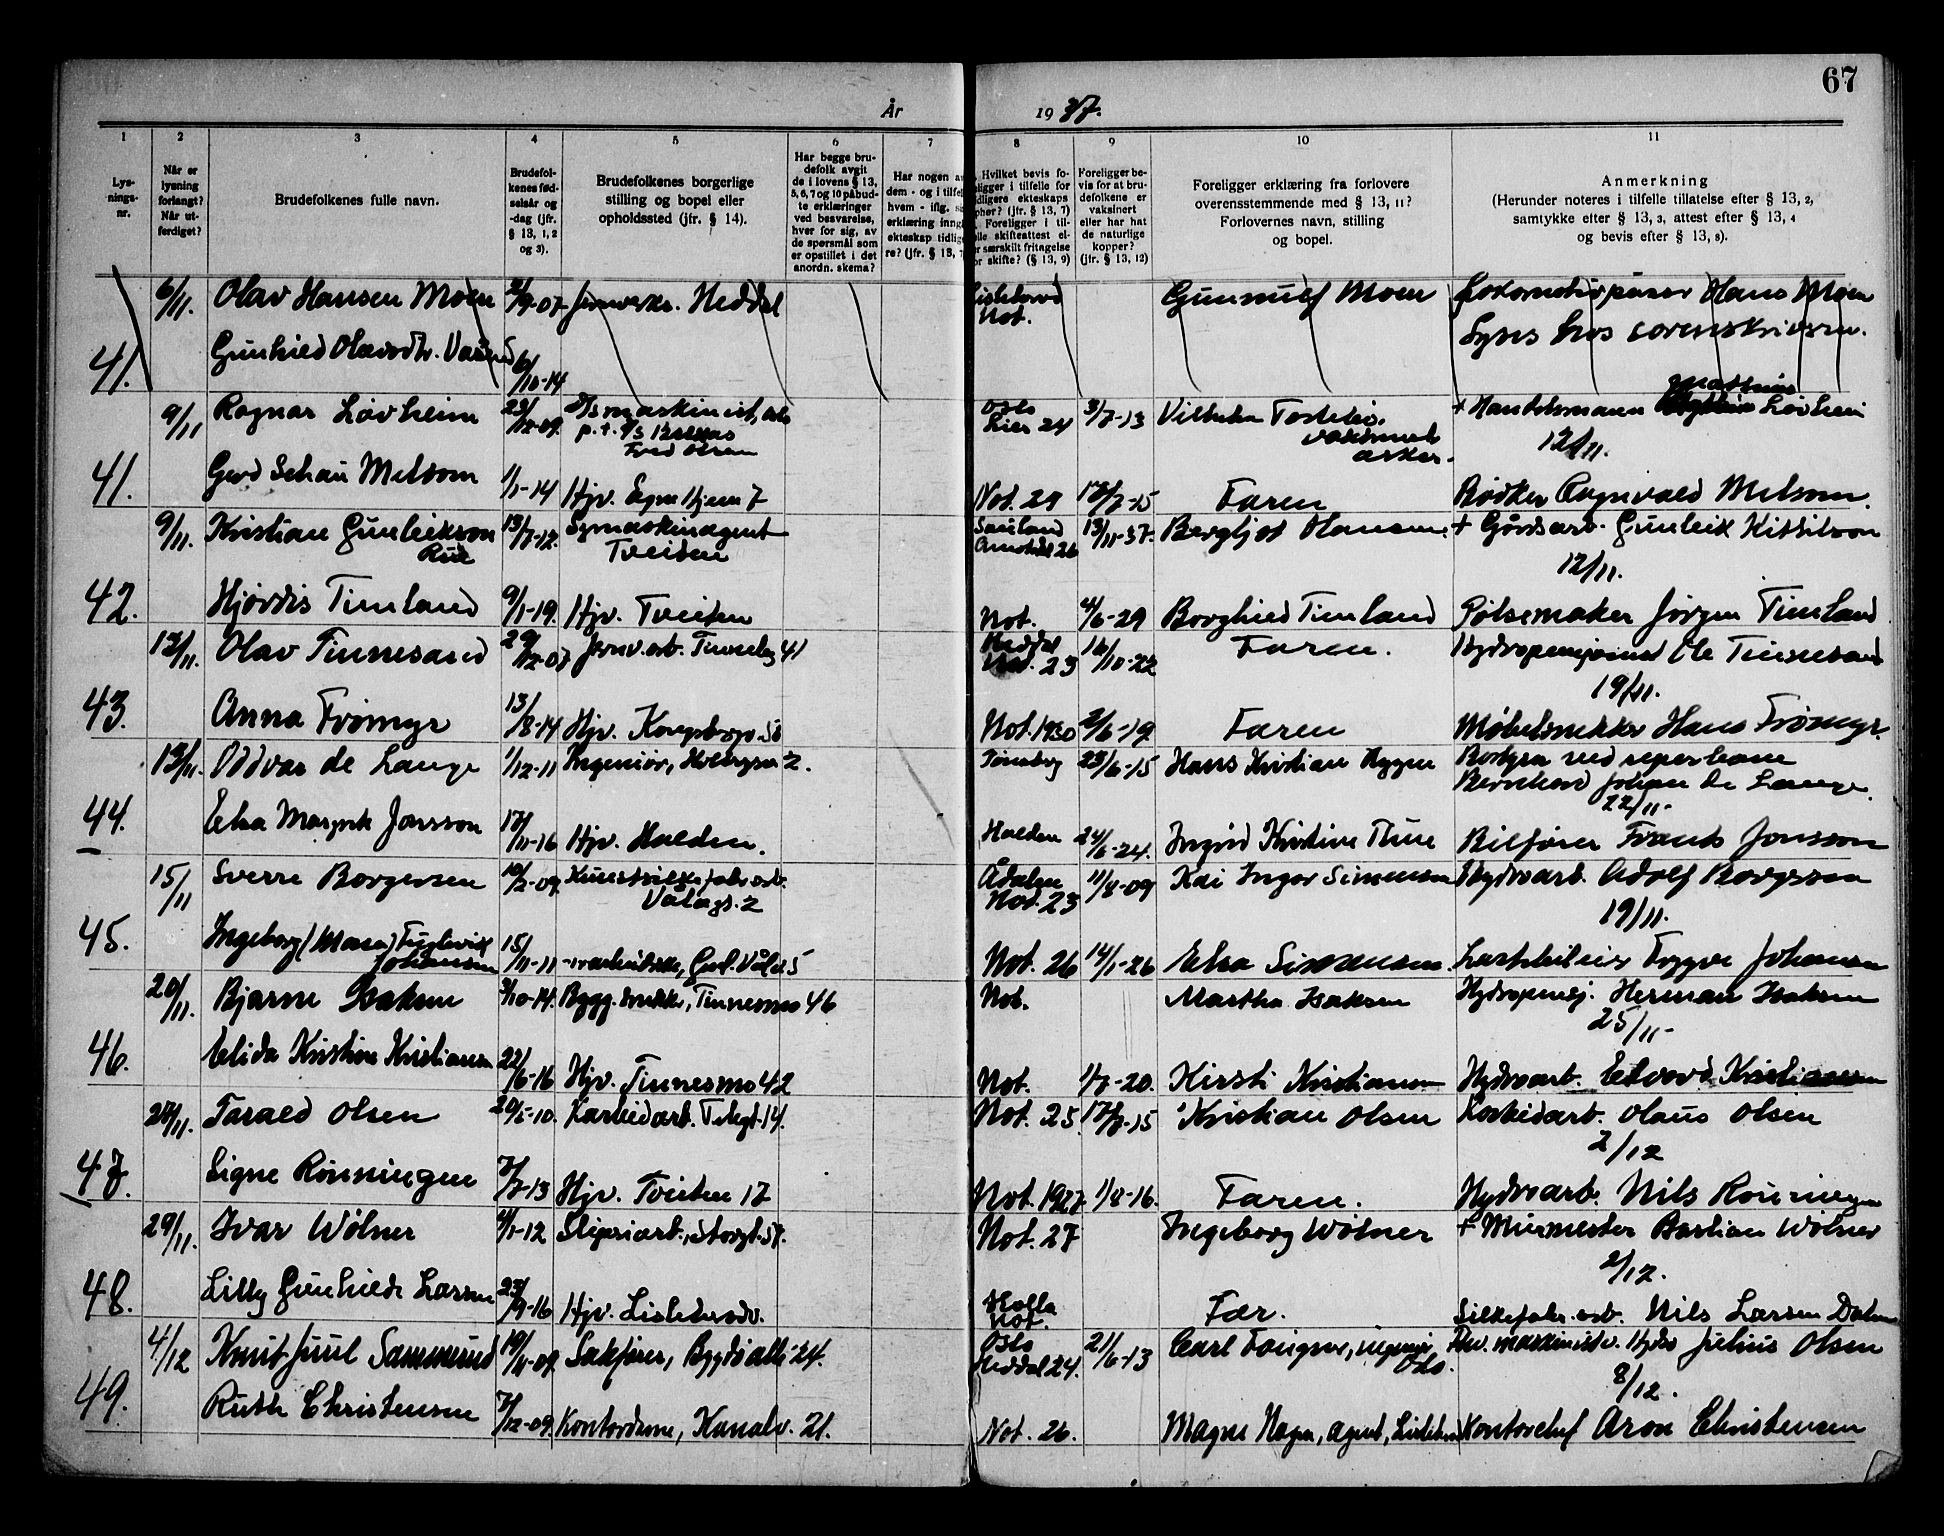 67
År 1937.
1 2 3 4 5 6 7 8 9 10 11
Lys-
nings-
nr.
Når er
lysning
forlangt?
Når ut-
ferdiget?
Brudefolkenes fulle navn.
Brudefol-
kenes fød-
selsår og
-dag (jfr.
§ 13, 1, 2
og 3).
Brudefolkenes borgerlige
stilling og bopel eller
opholdssted (jfr. § 14).
Har begge bru-
defolk avgit
de i lovens § 13,
5, 6, 7 og 10 påbud-
te erklæringer
ved besvarelse,
hver for sig, av
de spørsmål som
er opstillet i det
anordn. skema?
Har nogen a
dem - og i tilfel
hvem - iflg. s
erklæring inng
ekteskap tidlig
re? (jfr. § 13,
Hvilket bevis fo-
ligger i tilfelle for
dligere ekteskaps
phør? (jfr. § 13, 7)
Foreligger i til-
elle skifteattest el-
r særskilt fritagelse
or skifte? (§ 13, 9)
Foreligger be-
vis for at bru-
defolkene er
vaksinert
eller har hat
de naturlige
kopper?
(jfr. § 13, 12)
Foreligger erklæring fra forlovere
overensstemmende med § 13, 11?
Forlovernes navn, stilling
og bopel.
Anmerkning
(Herunder noteres i tilfelle tillatelse efter § 13, 2,
samtykke efter § 13, 3, attest efter § 13, 4
og bevis efter § 13, 8).
6/11. Olav Hansen Moen 2/9-07 Heddal Not. Gunnulf Moen Hans Moen
41. Gunhild Olavsdtr. 6/10-14 Lyses hos sorenskriveren.
9/11 Ragnar Løvheim 23/12-09. maskinist, Oslo Lier 24 3/7-13 Vilhelm + Handelsmann Mathias Løvheim
p.t. Fred Olsen Asker. 12/11.
41. Gerd Schau Melsom 1/1-14 Hjv. Egne Hjem 7 Not. 29 Faren Bødker Ragnvald Melsom.
9/11. Kristian Gunleikson 13/7-12. Symaskinagent Sauland 13/11-37. Bergljot Hansen. + Gårdsarb. Gunleik Kittilson
Rue Tveiten 26 12/11.
42. Hjørdis Timland 9/1-19. Hjv. Tveiten Not. 4/6-29 Borghild Timland Pølsemaker Jørgen Timland
12/11. Olav Tinnesand 29/12-07 Jernv.arb. 41 Heddal Not. 23 16/10-22 Faren. Hydropensjonist Ole Tinnesand
19/11.
43. Anna Frømyr 13/8-14 Hjv. Kongsbergv. Not. 1930 2/6-19 Faren Møbelsnekker Hans Frømyr.
13/11. Oddvar de Lange 1/12-11 Ingeniør, 2. Tønsberg 23/6-15 Hans Kristian Aygen
Bernhard Johan de Lange.
22/11-
44. Elsa Margrete Jonsson 17/11-16 Hjv. Halden. Halden 24/6-24. Ingrid Kristine Thue Bilfører Frants Jonsson
15/11 Sverre Borgersen 10/2-09. Kunstsilkefabr.arb. Ådalen 11/8-09 Kai Inger Simensen Hydroarb. Adolf Borgersen
2 Not. 23 19/11.
45. Ingeborg (Mosen) Fuglevik
Johansen 15/11-11 5 Not. 26 14/1-26 Elsa Simensen. Lastebileier Trygve Johansen
20/11. Bjarne Isaksen 3/10-14. Bygg.snekker, Tinnesmo 46 Not. Martha Isaksen Hydropensj. Herman Isaksen
25/11-
46. Elida Kristine Kristiansen 22/6-16 Hjv. Tinnesmo 42 Not. 1/7-20. Kirsti Kristiansen Hydroarb. Edvard Kristiansen
27/11. Tarald Olsen 20/5-10. Karbidarb. 14. Not. 25. 17/7-15 Kristian Olsen Karbidarb. Olaus Olsen
2/12
47. Signe Rønningen 7/7-13 Hjv. Tveiten 17 Not. 1927 1/8-16. Faren. Hydroarb. Nils Rønningen
29/11. Ivar Wølner 4/1-12 Sliperiarb., Storgt. 57. Not. 27 Ingeborg Wølner + Murmester Bastian Wølner
2/12.
48. Lilly Gunhilde Larsen 23/9-16 Hjv. Lisleherad. Holla Not. Far. Silkefabr. arb. Nils Larsen Dalen
4/12 Knut Juul Sammerud 19/11-09. Sakfører, Bygdø allé 24. Oslo Heddal 24. 21/6-13 Carl Fougner, ingeniør, Oslo. maskinist v. Hydro Julius Olsen
8/12.
49. Ruth Christensen 7/12-09. Kontordame, Kanalv. 21. Not. 26. Magne Hagen, agent, Kontorchef Aron Christensen